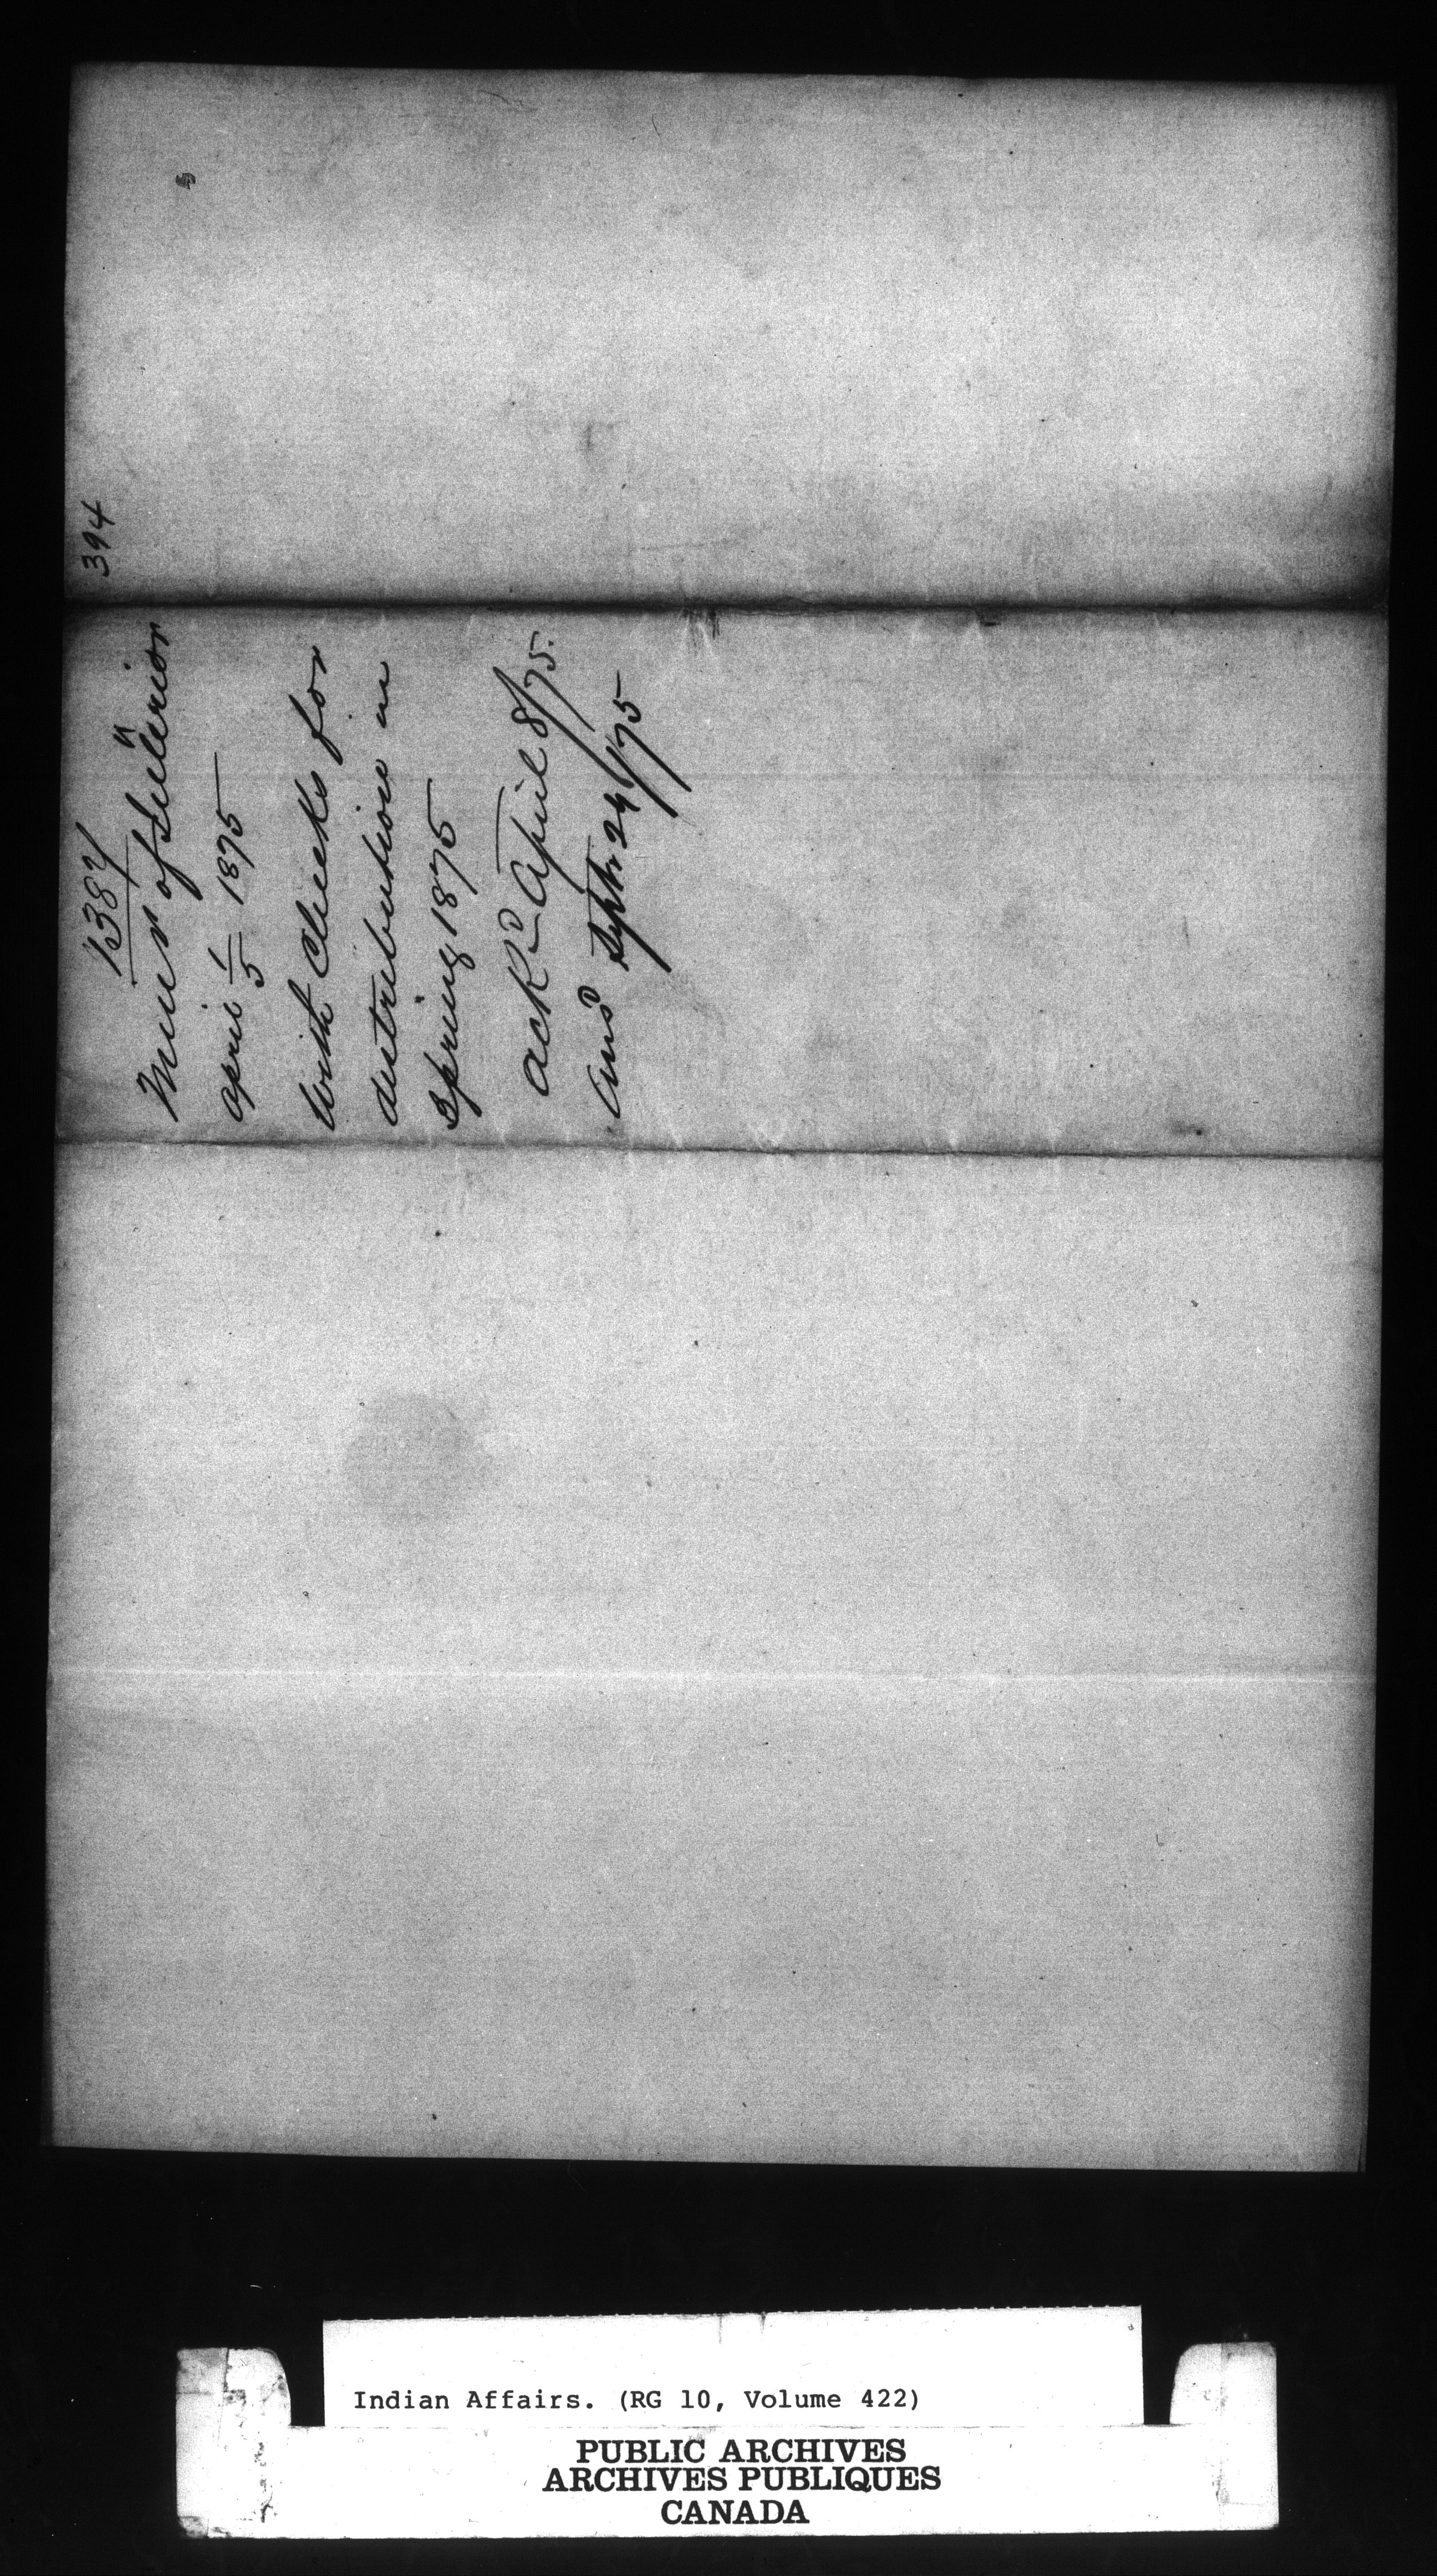 394
1387
Minr of Interior
April 1/5 1875
With Cheeks for
distribution in
Spring 1875
ackd April 8/75.
Ansd Septr 24/75
Indian Affairs. (RG 10, Volume 422)
PUBLIC ARCHIVES
ARCHIVES PUBLIQUES
CANADA